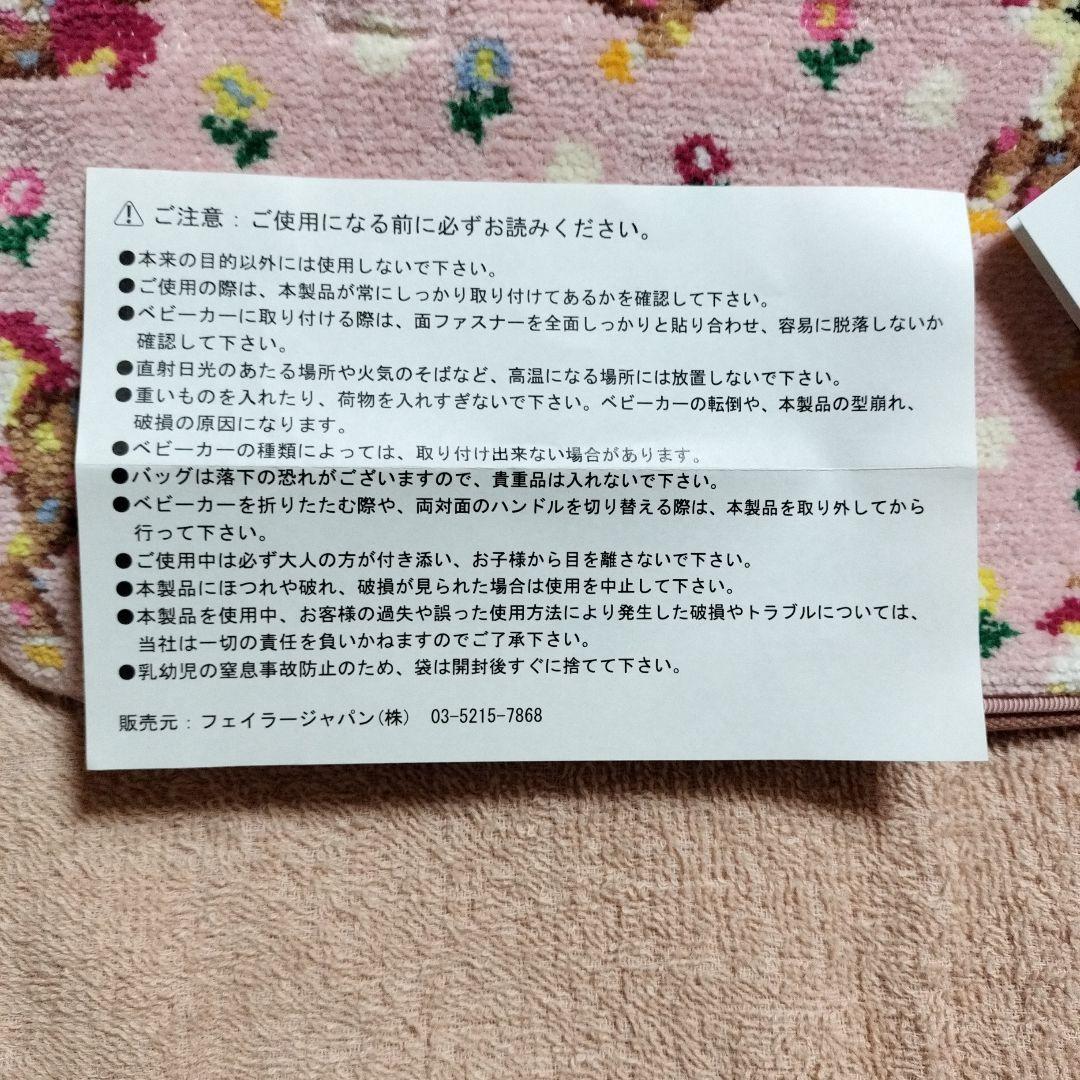 ⚠ ご注意：ご使用になる前に必ずお読みください。
●本来の目的以外には使用しないで下さい。
●ご使用の際は、本製品が常にしっかり取り付けてあるかを確認して下さい。
●ベビーカーに取り付ける際は、面ファスナーを全面しっかりと貼り合わせ、容易に脱落しないか
確認して下さい。
●直射日光のあたる場所や火気のそばなど、高温になる場所には放置しないで下さい。
●重いものを入れたり、荷物を入れすぎないで下さい。ベビーカーの転倒や、本製品の型崩れ、
破損の原因になります。
●ベビーカーの種類によっては、取り付け出来ない場合があります。
●バッグは落下の恐れがございますので、貴重品は入れないで下さい。
●ベビーカーを折りたたむ際や、両対面のハンドルを切り替える際は、本製品を取り外してから
行って下さい。
●ご使用中は必ず大人の方が付き添い、お子様から目を離さないで下さい。
●本製品にほつれや破れ、破損が見られた場合は使用を中止して下さい。
●本製品を使用中、お客様の過失や誤った使用方法により発生した破損やトラブルについては、
当社は一切の責任を負いかねますのでご了承下さい。
●乳幼児の窒息事故防止のため、袋は開封後すぐに捨てて下さい。
販売元：フェイラージャパン(株) 03-5215-7868